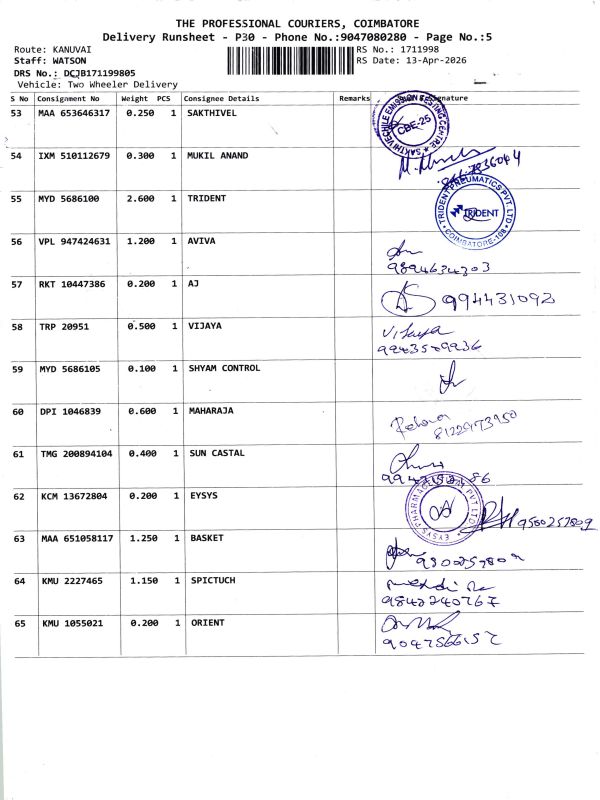 THE PROFESSIONAL COURIERS, COIMBATORE
Delivery Runsheet - P30 - Phone No.:9047080280 - Page No.:5
Route: KANUVAI
RS No.: 1711998
Staff: WATSON
RS Date: 13-Apr-2026
DRS No.: DCJB171199805
Vehicle: Two Wheeler Delivery
S No Consignment No Weight PCS Consignee Details Remarks Signature
53 MAA 653646317 0.250 1 SAKTHIVEL
SAKTHI VECHILE EMISSION TESTING CENTRE
CBE-25
54 IXM 510112679 0.300 1 MUKIL ANAND
55 MYD 5686100 2.600 1 TRIDENT
TRIDENT PNEUMATICS PVT. LTD
TRIDENT
COIMBATORE-108
56 VPL 947424631 1.200 1 AVIVA
9894634303
57 RKT 10447386 0.200 1 AJ
994431092
58 TRP 20951 0.500 1 VIJAYA
Vijaya
9943509936
59 MYD 5686105 0.100 1 SHYAM CONTROL
60 DPI 1046839 0.600 1 MAHARAJA
8122973950
61 TMG 200894104 0.400 1 SUN CASTAL
62 KCM 13672804 0.200 1 EYSYS
EYSYS PHARMACEUTICAL PVT LTD
9500257809
63 MAA 651058117 1.250 1 BASKET
64 KMU 2227465 1.150 1 SPICTUCH
9842240767
65 KMU 1055021 0.200 1 ORIENT
9047566157